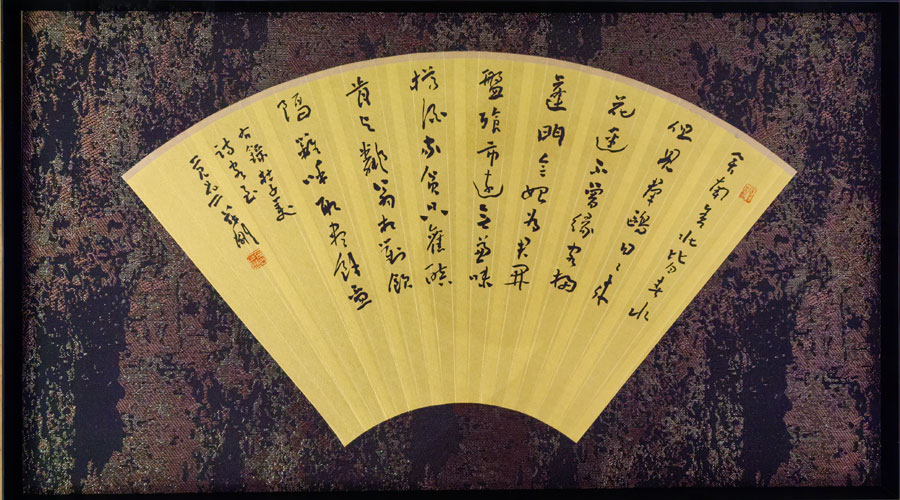 舍南舍北皆春水
但見群鷗日日來
花徑不曾緣客掃
蓬門今始為君開
盤飧市遠無兼味
樽酒家貧只舊醅
肯與鄰翁相對飲
隔籬呼取盡餘盃
右錄杜子美
詩客至